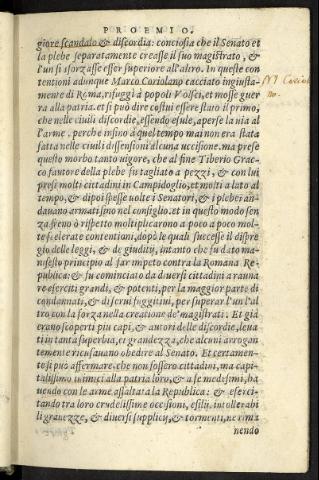 PROEMIO.
giore scandalo & discordia: conciosia che il Senato et
la plebe separatamente creasse il suo magistrato, &
l'un si sforzasse esser superiore all'altro. In queste con
tentioni adunque Marco Coriolano cacciato ingiusta-
mente di Roma, rifuggì à popoli Volsci, et mosse guer
ra alla patria. et si può dire costui essere stato il primo,
che nelle ciuili discordie, essendo esule, aperse la uia al
l'arme. perche infino à quel tempo mai non era stata
fatta nelle ciuili dissensioni alcuna uccisione. ma prese
questo morbo tanto uigore, che al fine Tiberio Grac-
co fautore della plebe fu tagliato a pezzi, & con lui
presi molti cittadini in Campidoglio, et molti a lato al
tempio, & dipoi spesse uolte i Senatori, & i plebei an-
dauano armati sino nel consiglio. et in questo modo sen
za freno ò rispetto multiplicarono a poco a poco mol-
te scelerate contentioni, dopò le quali successe il dispre
gio delle leggi, & de giudity, intanto che fu dato ma-
nifesto principio al far impeto contra la Romana Re-
publica: & fu cominciato da diuersi cittadini a rauna
re eserciti grandi, & potenti, per la maggior parte di
condannati, & di serui fuggitiui, per superar l'un l'al
tro con la forza nella creatione de' magistrati. Et già
erano scoperti piu capi, & autori delle discordie, leua
ti in tanta superbia, et grandezza, che alcuni arrogan
temente ricusauano obedire al Senato. Et certamen-
te si può affermare, che non fossero cittadini, ma capi-
talissimi inimici alla patria loro, & a se medesimi, ha
uendo con le arme assaltata la Republica: & eserci-
tando tra loro crudelissime occisioni, esilij, intollerabi
li grauezze, & diuersi supplicij, & tormenti, ne rima
nendo
M Coriola
no.